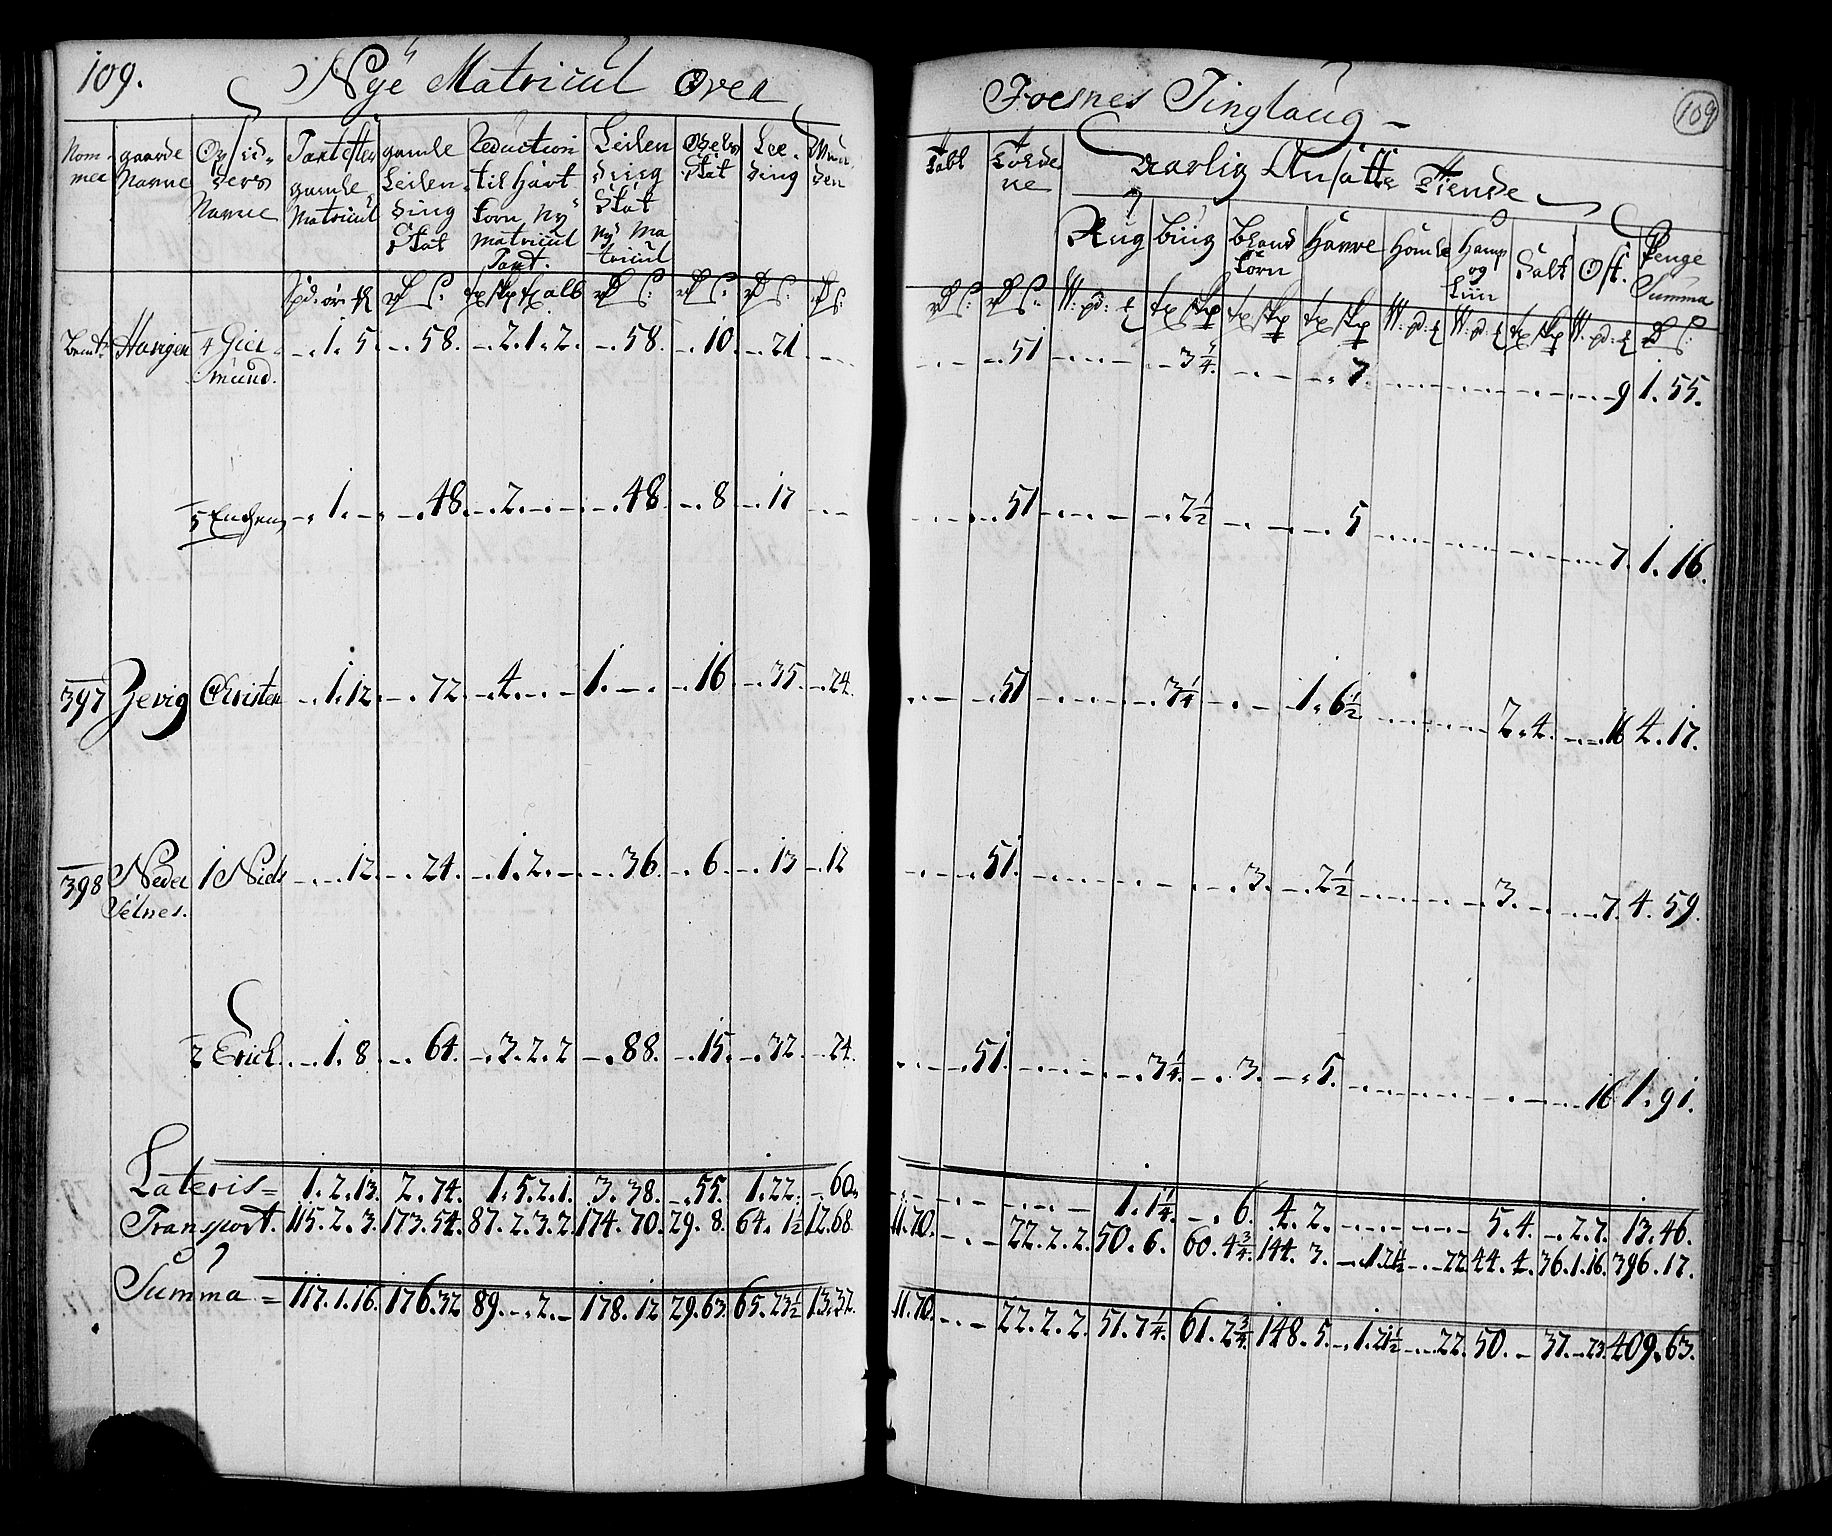 109. Nÿe Matricul Over
Foesnes Tinglaug
109
Nom-
mer
gaarde
Navne
Op sid-
deres
Navne
Taxt efter
gamle
Matricul
gamle
Leilen-
ding
Skat
Reduction
til Hart
korn Nÿ
Matricul
Taxt.
Leilen
ding
Skat
nÿ Ma
tricul
Skat
Lee-
ding
Aarlig Ansatte Tiende
Rug
biug
bland
korn
Havre
Homle
Hamp
og
Liin
Salt
Ost.
Penge
Summa
Havigen 4 Gier -.1.5 -.58. -.2.1.2. -.58. -.10. -.21
mund.
-.51 3¼. 7. 9 1.55.
5 -.1.-. -.48. -.2. -.48. -.8 -.17
51 2½ 5 7. 1.16.
397 Zevig Christen -.1.12. -.72. -.4. 1.-. -.16 -.35. -.24.
51 3¼ 1.6½ 2.4. 16 4.17.
398 Neder 1 Niels -.-.12. -.24. -.1.2. -.36. -.6. -.13 -.12
Selnes.
51. 3. 2½ 3. 7. 4.59.
2 Erich -.1.8. -.64. -.3.2.2 -.88. -.15. -.32. -.24.
51. 3¼. 3. 5. 16 1.91.
Lateris= 1.2.13. 2.74. 1.5.2.1. 3.38. -.55. 1.22. -.60.
1.1¼. -.6. 4.2. 5.4. -.2.7. 13.46.
Transport. 115.2.3. 173.54. 87.2.3.2 174.70. 29.8. 64.1½ 12.68.
11.70. 22.2.2. 50.6. 60.4¾. 144.3. 22 44.4. 36.1.16. 396.17.
Summa = 117.1.16. 176.32 89.-.2.- 178.12 29.63. 65.23½ 13.32.
11.70. 22.2.2. 51.7¼. 61.2¾. 148.5. -.1.21½ 22. 50.- 37.-.23. 409.63.